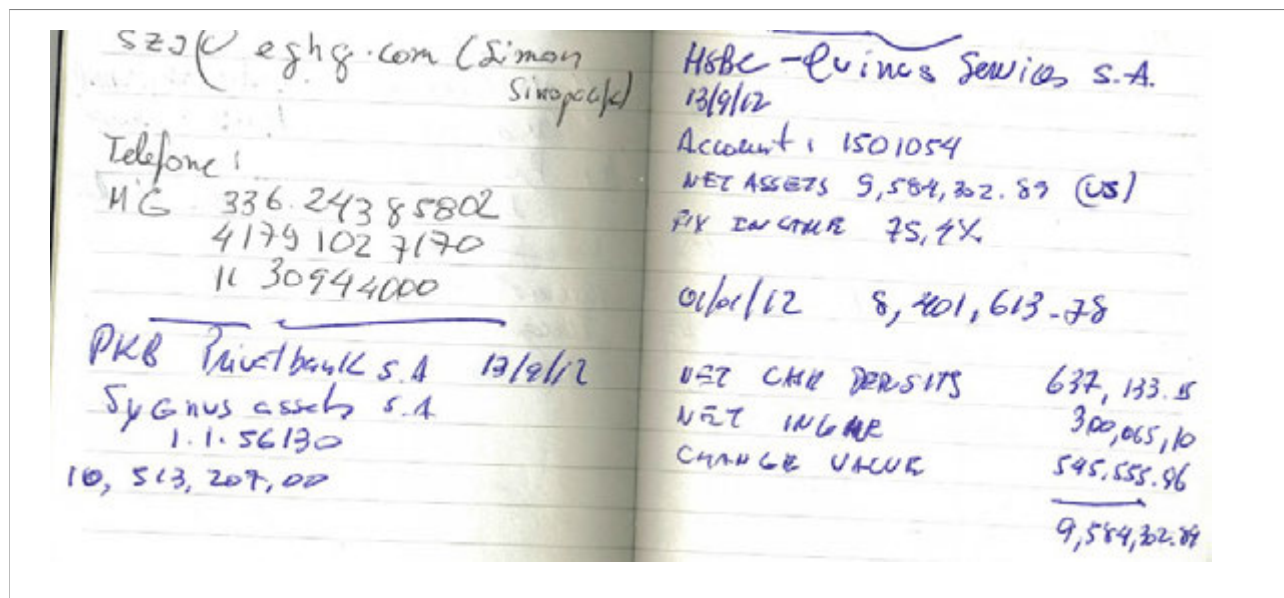 szg@eghg.com (Simon
Telefone:
MG 336.24385802
4179 102 7170
11 30944000
PKB Privatbank S.A 13/9/12
Sygnus assets S.A
1.1.56130
10,513,207,00
HSBC - Quinus Services S.A.
13/9/12
Account: 1501054
NET ASSETS 9,584,302.89 (US)
FIX INCOME 75,4%
01/01/12 8,401,613-78
NET CASH DEPOSITS 637,133.15
NET INCOME 300,065,10
CHANGE VALUE 545,555.96
9,584,302.89